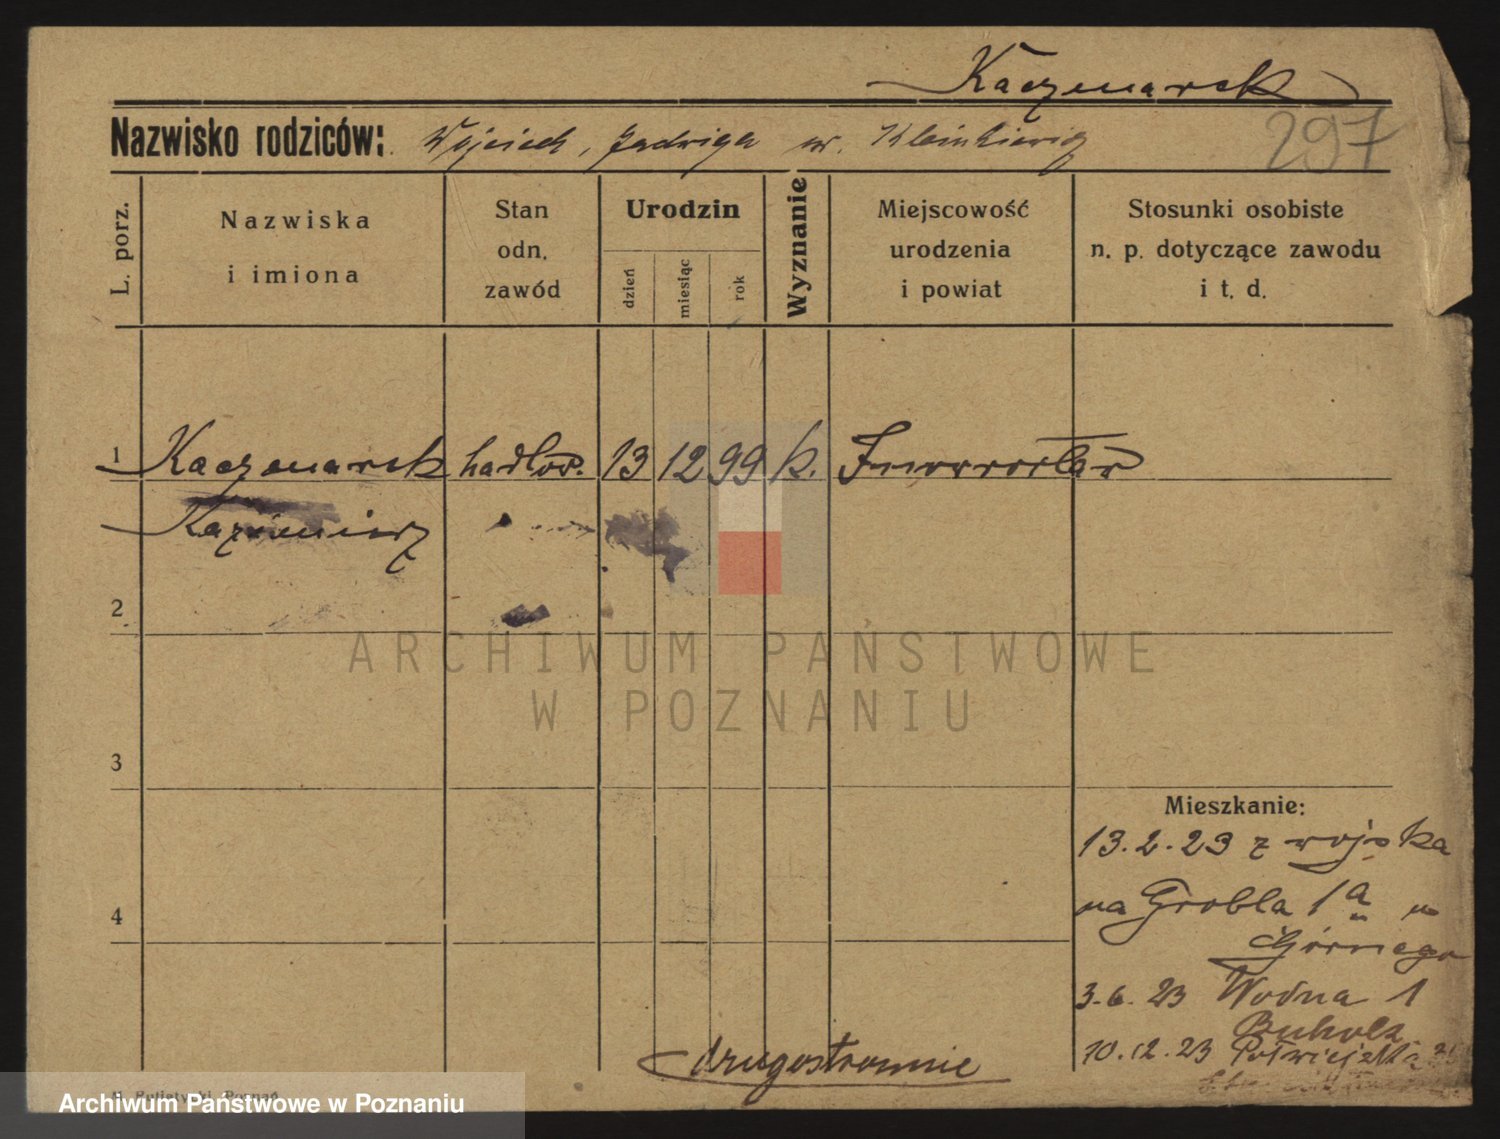 Kaczmarek
297
Nazwisko rodziców: Wojciech, Jadwiga ur.
L. porz.
Nazwiska i imiona
Stan odn. zawód
Urodzin
dzień
miesiąc
rok
Wyznanie
Miejscowość urodzenia i powiat
Stosunki osobiste n. p. dotyczące zawodu i t. d.
1 Kaczmarek handlow. 13 12 99 k. Inowrocław
Kazimierz
2
3
4
ARCHIWUM PAŃSTWOWE
W POZNANIU
Mieszkanie:
13.2.23 z wojska
na Grobla 1a u
Górnego
3.6.23 Wodna 1
Buholz
10.12.23 Półwiejska
drugostronnie
Archiwum Państwowe w Poznaniu